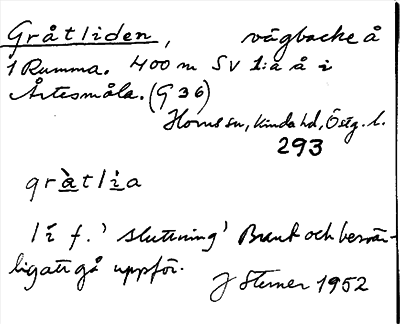 Gråtliden, vägbacke å
1 Rumma. 400 m SV l:a å i
Åtesmåla. (G 36)
Horns sn, Kinda hd, Östg. l.
293
gràtlia
lí f. 'sluttning' Brant och besvär-
ligatt gå uppför.
J Sterner 1952